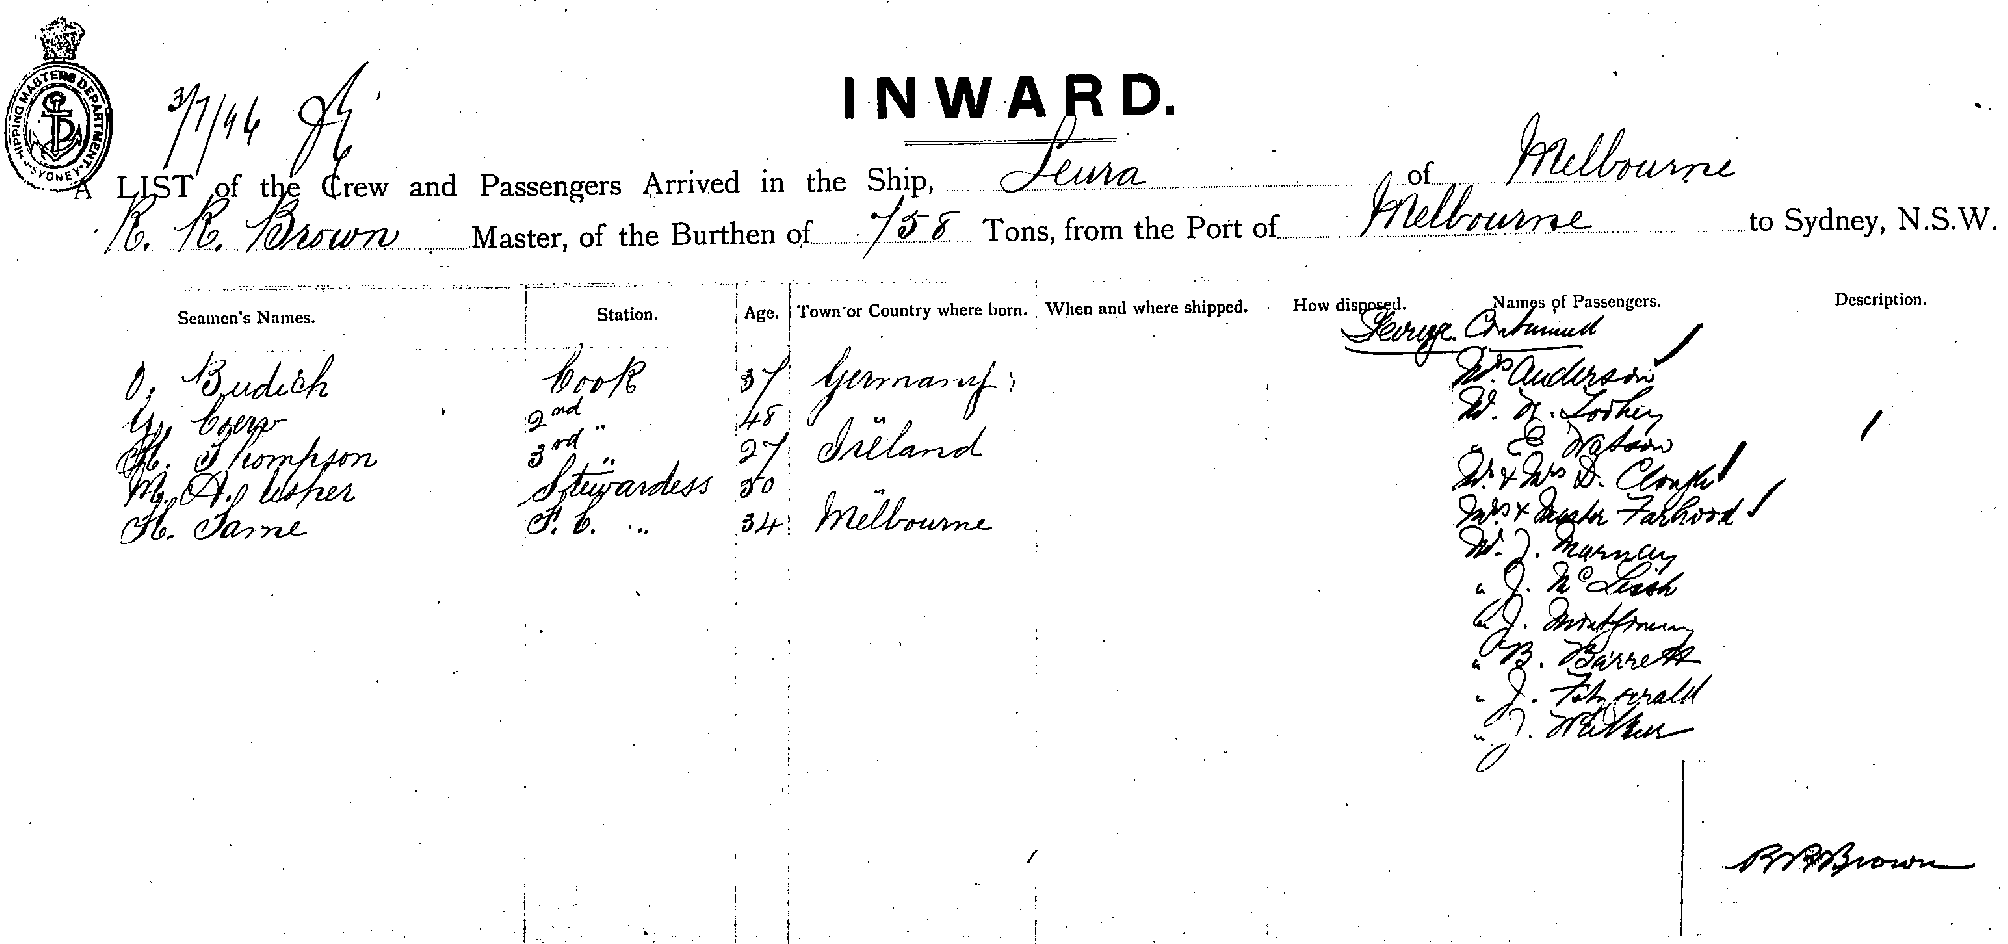 SHIPPING MASTERS DEPARTMENT SYDNEY
3/7/96
INWARD.
A LIST of the Crew and Passengers Arrived in the Ship, Leura of Melbourne
R. R. Brown Master, of the Burthen of 758 Tons, from the Port of Melbourne to Sydney, N.S.W.
Seamen's Names. Station. Age. Town or Country where born. When and where shipped. How disposed. Names of Passengers. Description.
Continued
O. Budich Cook 37 Germany Mrs Anderson
2nd " 48 W.
H. Thompson 3rd " 27 Ireland " E Watson
M. A. Usher Stewardess 30 Mr & Mrs D. Clough
H. Same F. C. " 34 Melbourne Mrs & Master Farhood
J. Murney
" J. McLeish
" J. Montgomery
" B. Barrett
" J. Fitzgerald
" J. Walker
R R Brown